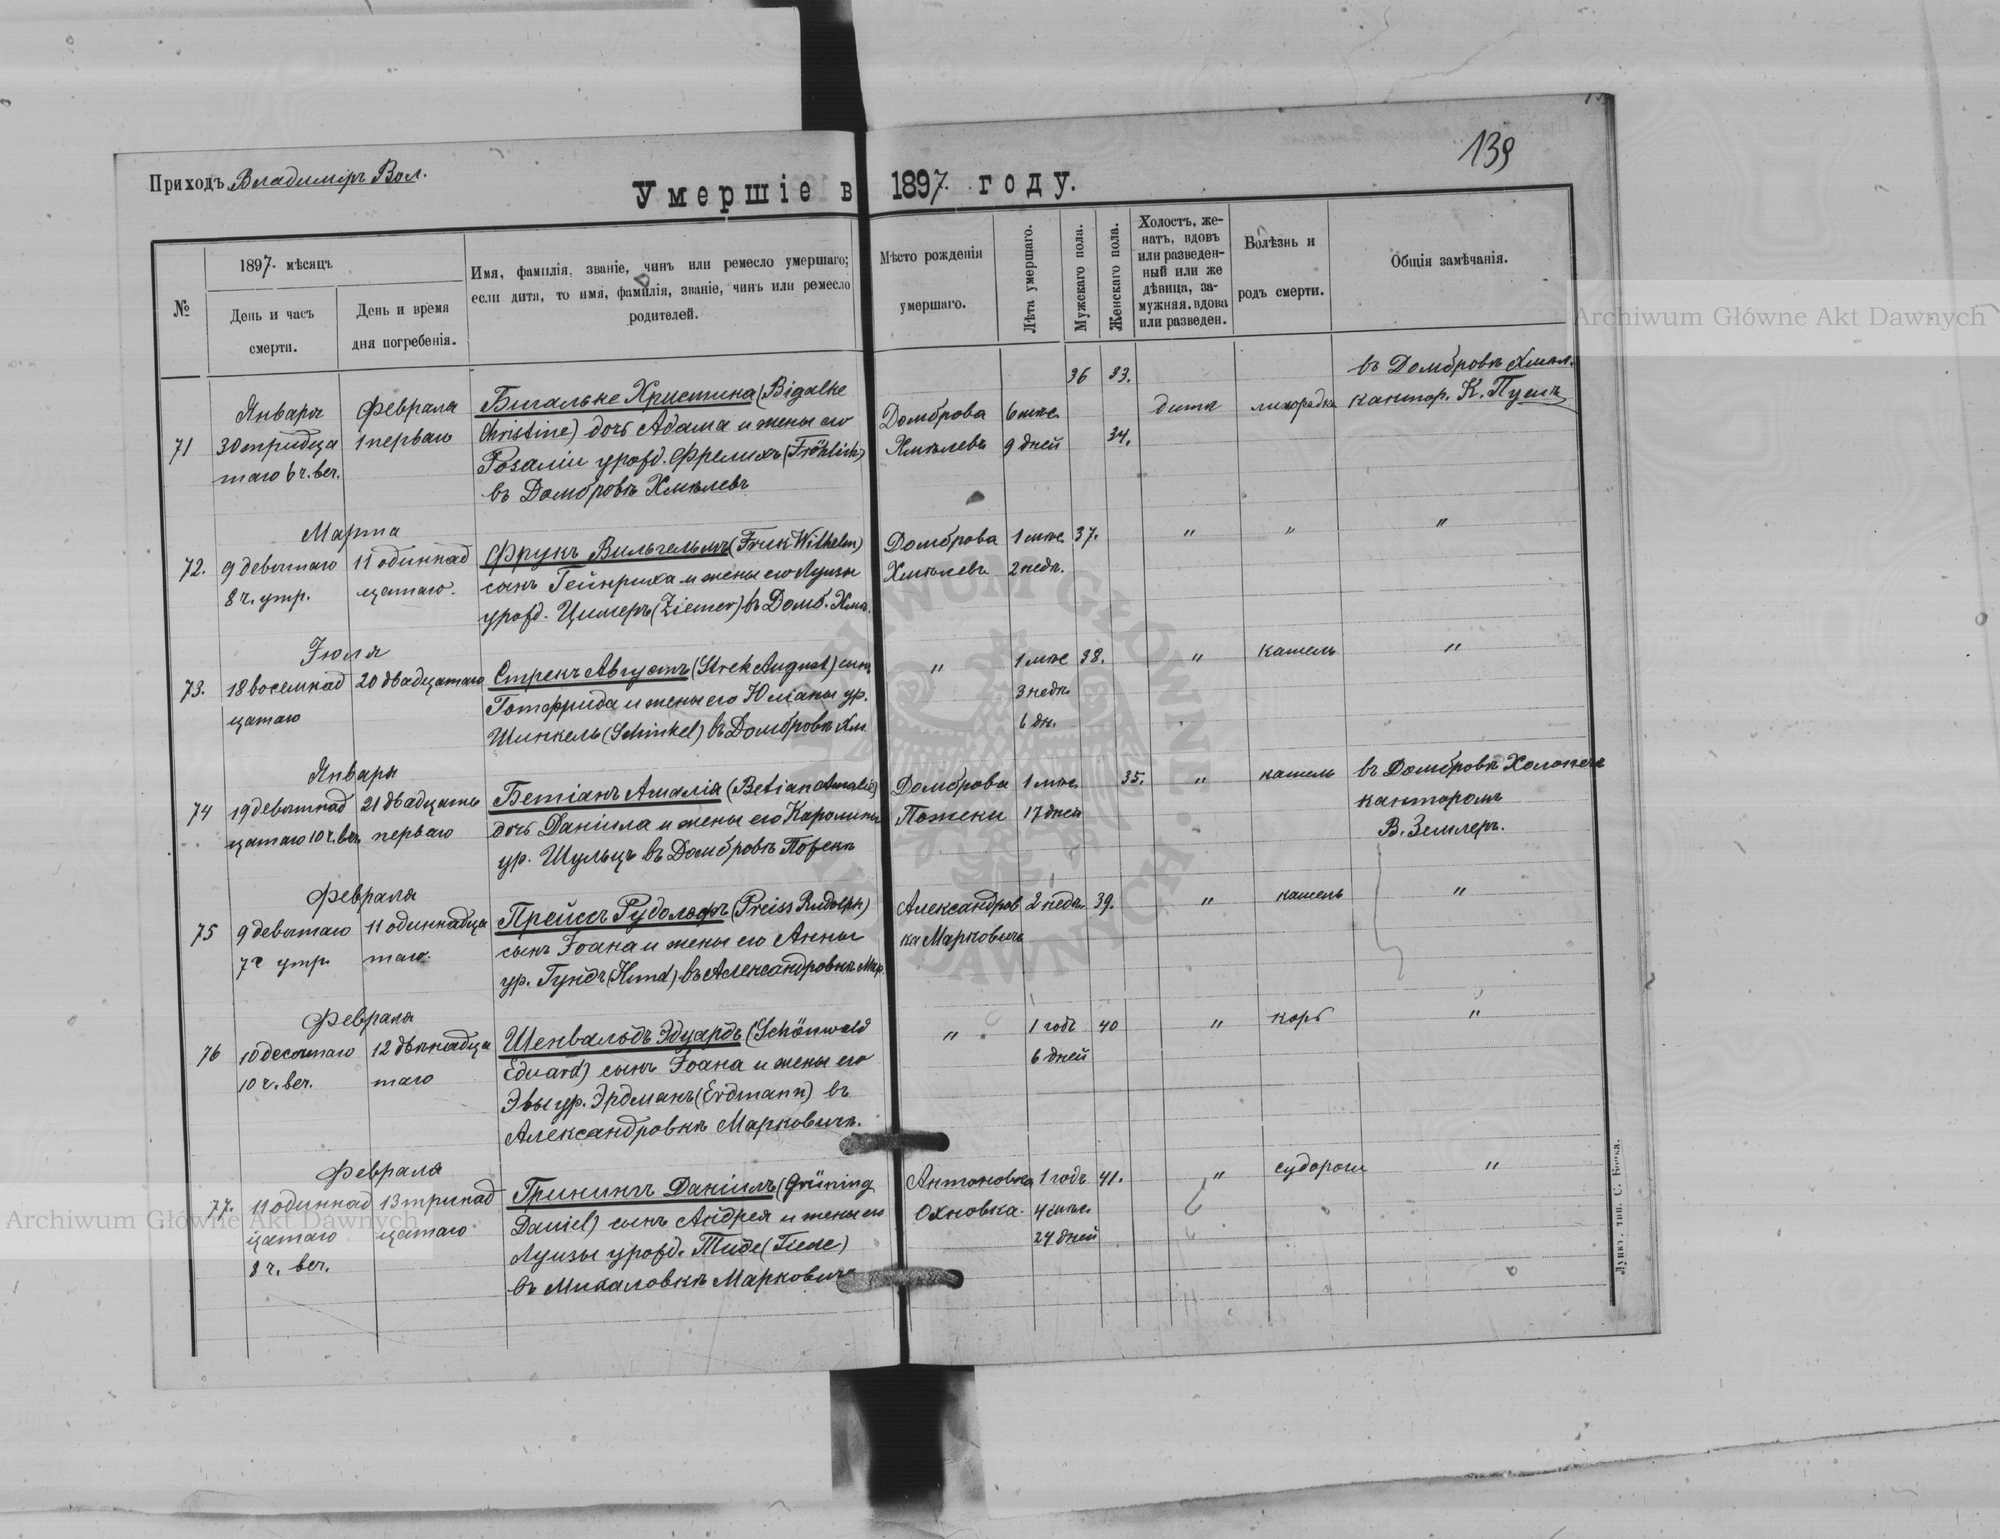 139
Приходъ Владимiръ Вол.
Умершіе в 1897 году.
№
1897 мѣсяцъ
День и часъ
смерти.
День и время
дня погребенія.
Имя, фамилія, званіе, чинъ или ремесло умершаго;
если дитя, то имя, фамилія, званіе, чинъ или ремесло
родителей.
Мѣсто рожденія
умершаго.
Лѣта умершаго.
Мужскаго пола.
Женскаго пола.
Холостъ, же-
натъ, вдовъ
или разведен-
ный или же
дѣвица, за-
мужняя, вдова
или разведен.
Болѣзнь и
родъ смерти.
Общія замѣчанія.
36 33.
71
Января
30 тридца
таго 6 ч. веч.
Февраля
1 перваго
Бигальке Христина (Bigalke
Christine) дочь Адама и жены его
Розаліи урожд. Фрелихъ (Fröhlich)
въ Домбровѣ Хмѣлевъ
Домброва
Хмѣлевъ
6 мѣс.
9 дней
34.
дитя
лихорадка
въ Домбровѣ Хмѣл.
кантор. К. Пушъ
72.
Марта
9 девятаго
8 ч. утр.
11 одиннад
цатаго.
Фрукъ Вильгельмъ (Fruk Wilhelm)
сынъ Гейнриха и жены его Луизы
урожд. Цимеръ (Ziemer) въ Домб. Хмѣ.
Домброва
Хмѣлевъ
1 мѣс.
2 недѣ.
37.
"
"
"
73.
Іюля
18 восемнад
цатаго
20 двадцатаго
Стрекъ Августъ (Strek August) сынъ
Готфрида и жены его Юліаны ур.
Шинкель (Schinkel) въ Домбровѣ Хм.
"
1 мѣс
3 недѣ.
6 дн.
38.
"
кашель
"
74
Января
19 девятнад
цатаго 10 ч. веч.
21 двадцать
перваго
Бетіанъ Амалія (Betian Amalie)
дочь Даніила и жены его Каролины
ур. Шульцъ въ Домбровѣ Пожекѣ
Домброва
Пожеки
1 мѣс.
17 дней
35.
"
кашель
въ Домбровѣ Холопеч
канторомъ
В. Землеръ.
75
Февраля
9 девятаго
7 ч утр.
11 одиннадца
таго.
Прейсъ Рудольфъ (Preiss Rudolph)
сынъ Іоана и жены его Анны
ур. Гундъ (Hund) въ Александровкѣ Мар.
Александров
ка Марковичъ
2 недѣ.
39.
"
кашель
"
76
Февраля
10 десятаго
10 ч. веч.
12 двѣнадца
таго
Шенвальдъ Эдуардъ (Schönwald
Eduard) сынъ Іоана и жены его
Эвы ур. Эрдманъ (Erdmann) въ
Александровкѣ Марковичъ.
"
1 годъ
6 дней
40
"
корь
"
77.
Февраля
11 одиннад
цатаго
8 ч. веч.
13 тринад
цатаго
Грюнингъ Даніилъ (Grüning
Daniel) сынъ Андрея и жены его
Луизы урожд. Тиде (Tiede)
въ Михаловкѣ Марковичъ
Антоновка
Охновка.
1 годъ
4 мѣс.
24 дней
41.
"
судороги
"
Луцкъ, тип. С. Бокса.
Archiwum Główne Akt Dawnych
Archiwum Główne Akt Dawnych
ARCHIWUM GŁÓWNE AKT DAWNYCH